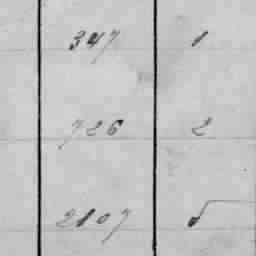 347 1
726 2
2107 5